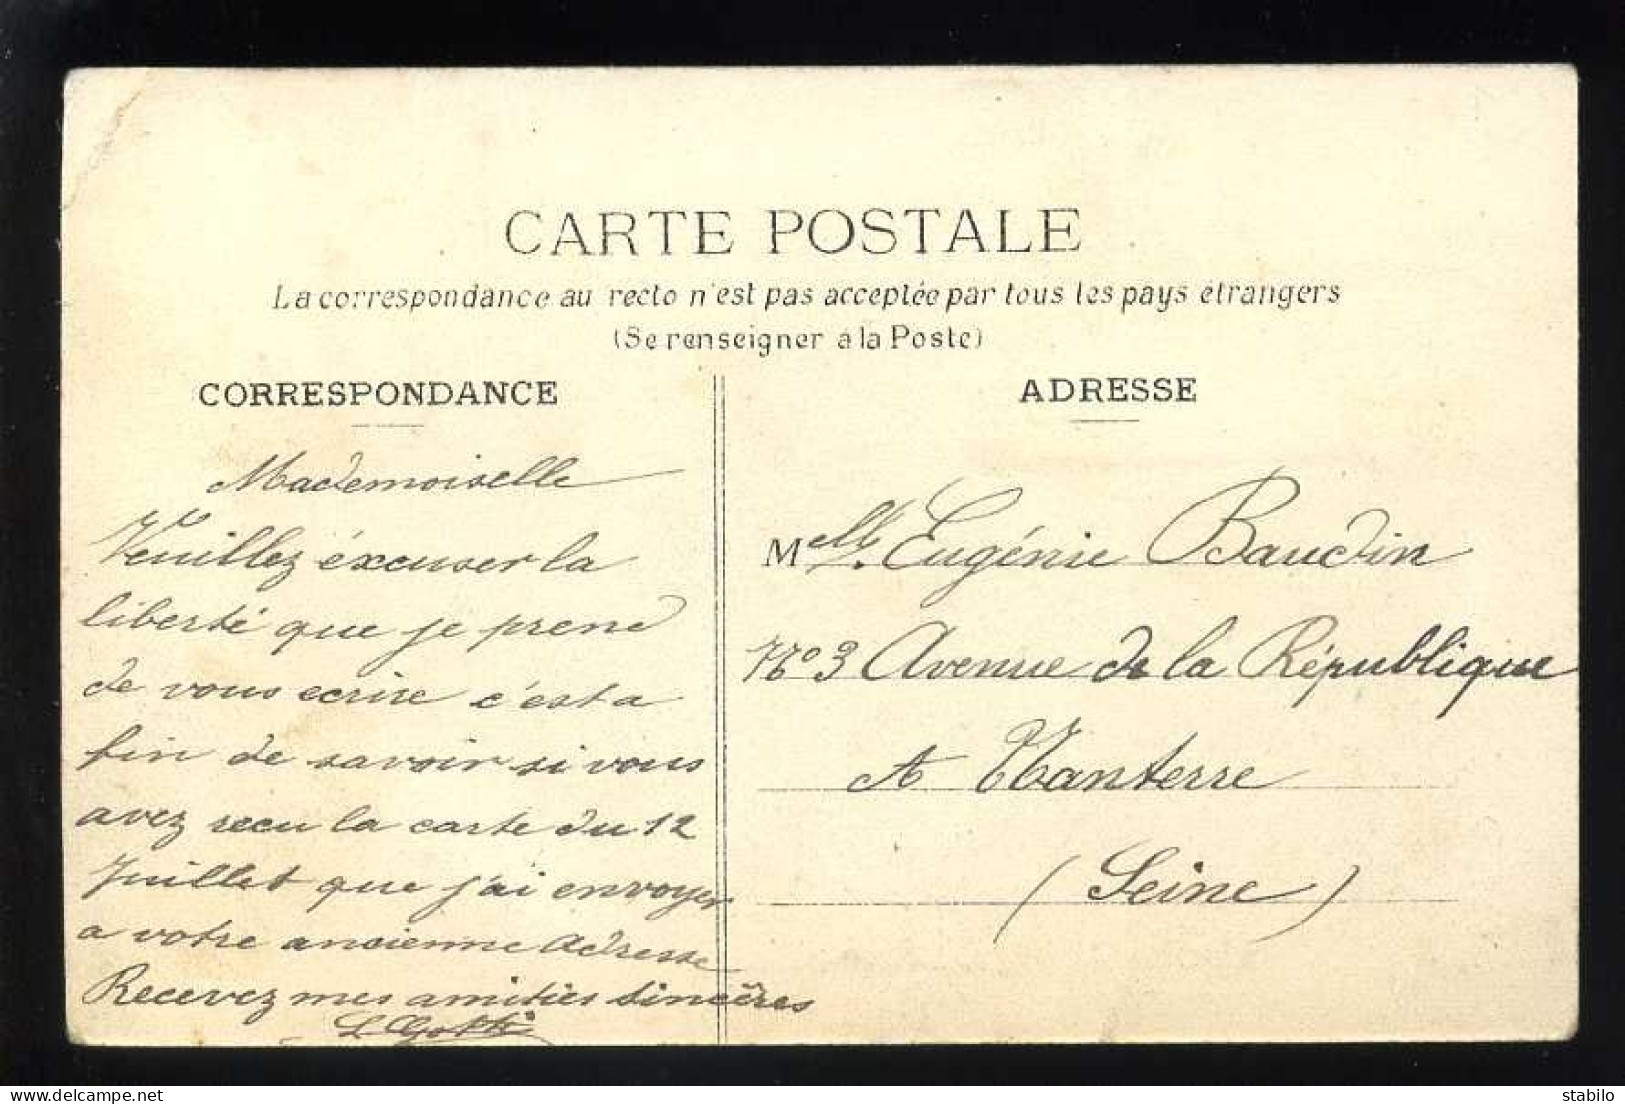 CARTE POSTALE
La correspondance au recto n'est pas acceptée par tous les pays étrangers
(Se renseigner à la Poste)
CORRESPONDANCE
Mademoiselle
Veuillez éxcuser la
liberté que je prend
de vous ecrire c'est a
fin de savoir si vous
avez recu la carte du 12
Juillet que j'ai envoyer
a votre ancienne adresse
Recevez mes amitiés sincères
ADRESSE
Melle. Eugénie Baudin
No 3 Avenue de la République
A Nanterre
(Seine)
delcampe.net
stabilo